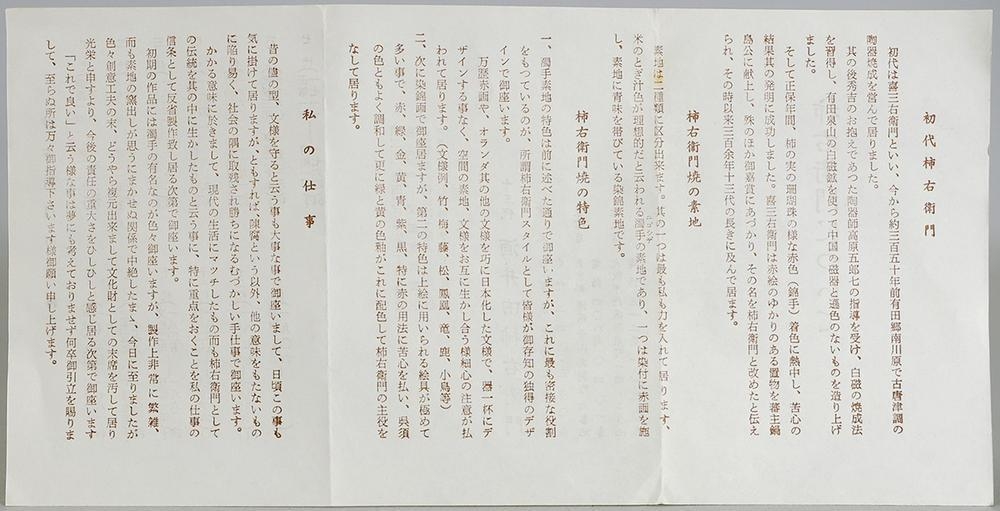 初代柿右衛門
初代は喜三右衛門といい、今から約三百五十年前有田郷南川原で古唐津調の
陶器焼成を営んで居りました。
其の後秀吉のお抱えであつた陶器師高原五郎七の指導を受け、白磁の焼成法
を習得し、有田泉山の白磁鉱を使つて中国の磁器と遜色のないものを造り上げ
ました。
そして正保年間、柿の実の珊瑚珠の様な赤色(錦手)着色に熱中し、苦心の
結果其の発明に成功しました。喜三右衛門は赤絵のゆかりのある置物を藩主鍋
島公に献上し、殊のほか御嘉賞にあづかり、その名を柿右衛門と改めたと伝え
られ、その時以来三百余年十三代の長きに及んで居ます。
柿右衛門焼の素地
素地は二種類に区分出来ます。其の一つは最も私も力を入れて居ります、
米のとぎ汁色が理想的だと云われる濁手の素地であり、一つは染付に赤画を施
ニゴシデ
し、素地に青味を帯びている染錦素地です。
柿右衛門焼の特色
一、濁手素地の特色は前に述べた通りで御座いますが、これに最も密接な役割
をもつているのが、所謂柿右衛門スタイルとして皆様が御存知の独得のデザ
インで御座います。
万歴赤画や、オランダ其の他の文様を巧に日本化した文様で、器一杯にデ
ザインする事なく、空間の素地、文様をお互に生かし合う様細心の注意が払
われて居ります。(文様例、竹、梅、藤、松、鳳凰、竜、鹿、小鳥等)
二、次に染錦画で御座居ますが、第二の特色は上絵に用いられる絵具が極めて
多い事で、赤、緑、金、黄、青、紫、黒、特に赤の用法に苦心を払い、呉須
の色ともよく調和して更に緑と黄の色釉がこれに配色して柿右衛門の主役を
なして居ります。
私の仕事
昔の儘の型、文様を守ると云う事も大事な事で御座いまして、日頃この事も
気に掛けて居りますが、ともすれば、陳腐という以外、他の意味をもたないもの
に陥り易く、社会の隅に取残され勝ちになるむづかしい手仕事で御座います。
かかる意味に於きまして、現代の生活にマッチしたもの而も柿右衛門として
の伝統を其の中に生かしたものと云う事に、特に重点をおくことを私の仕事の
信条として反省し製作致し居る次第で御座います。
初期の作品には濁手の有名なのが色々御座いますが、製作上非常に繁雑、
而も素地の窯出しが思うにまかせぬ関係で中絶したまま、今日に至りましたが
色々創意工夫の末、どうやら復元出来まして文化財としての末席を汚して居り
光栄と申すより、今後の責任の重大さをひしひしと感じ居る次第で御座います
「これで良い」と云う様な事は夢にも考えておりませず何卒御引立を賜りま
して、至らぬ所は万々御指導下さいます様御願い申し上げます。